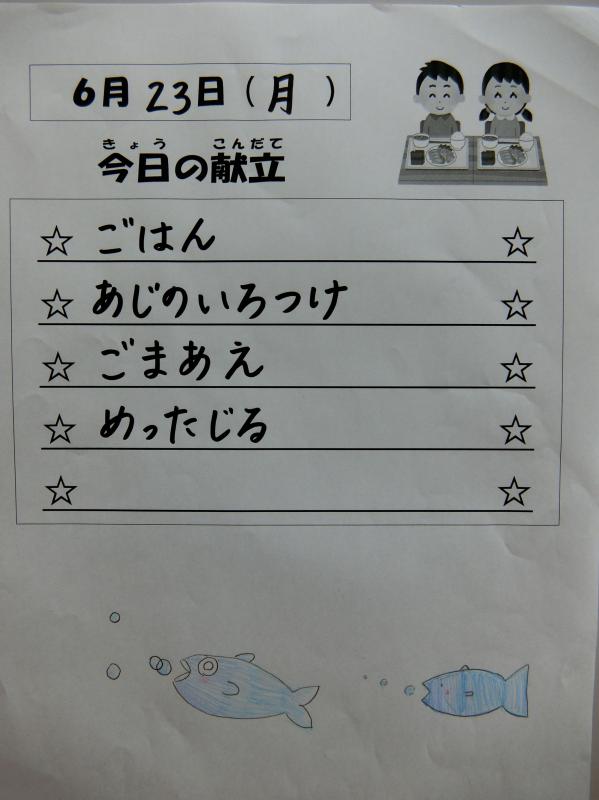 6月23日（月）
きょう こんだて
今日の献立
☆ ごはん ☆
☆ あじのいろつけ ☆
☆ ごまあえ ☆
☆ めったじる ☆
☆ ☆